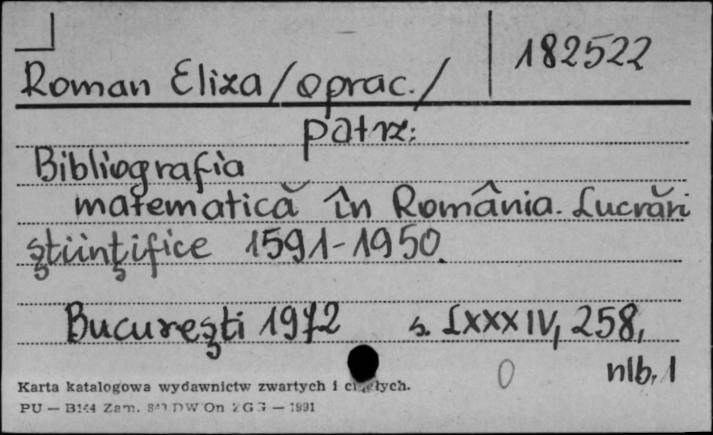 182522
Roman Eliza /oprac./
patrz:
Bibliografia
matematică în România. Lucrări
ştiinţifice 1591-1950.
Bucureşti 1972 s. LXXXIV, 258,
nlb. 1
0
Karta katalogowa wydawnictw zwartych i ciągłych.
PU — Zam. DW On — 1991